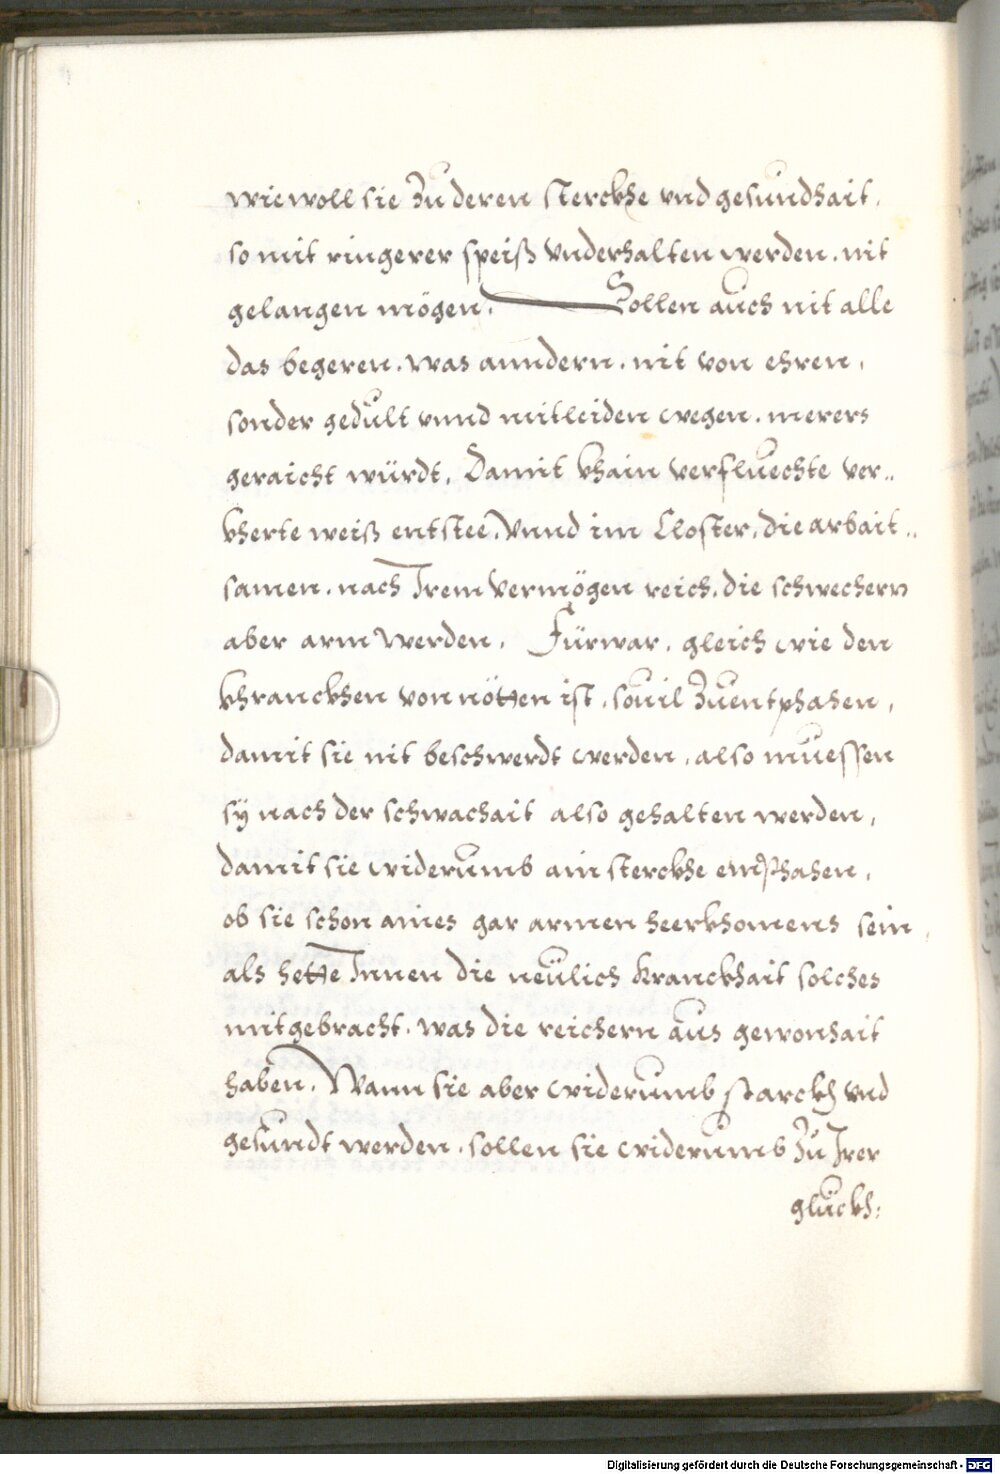 wiewoll sie Zu deren sterckhe vnd gesundhait,
so mit ringerer speiß vnderhalten werden. nit
gelangen mögen. Sollen auch nit alle
das begeren. was anndern. nit von ehren,
sonder gedult vnnd mitleiden wegen. merers
geraicht würdt. Damit khain verfluechte ver„
kherte weiß entstee. Vnnd im Closter. die arbait„
samen. nach Irem vermögen reich. die schwechern
aber arm werden. Fürwar. gleich wie den
khranckhen von nötten ist. souil Zuentphahen,
damit sie nit beschwerdt werden. also muessen
sÿ nach der schwachait also gehalten werden,
damit sie widerumb ain sterckhe emphahen,
ob sie schon aines gar armen heerkhomens sein,
als hette Innen die neulich kranckhait solches
mitgebracht. was die reichern aus gewonhait
haben. Wann sie aber widerumb starckh vnd
gesundt werden. sollen sie widerumb Zu Irer
gluckh:
Digitalisierung gefördert durch die Deutsche Forschungsgemeinschaft - DFG